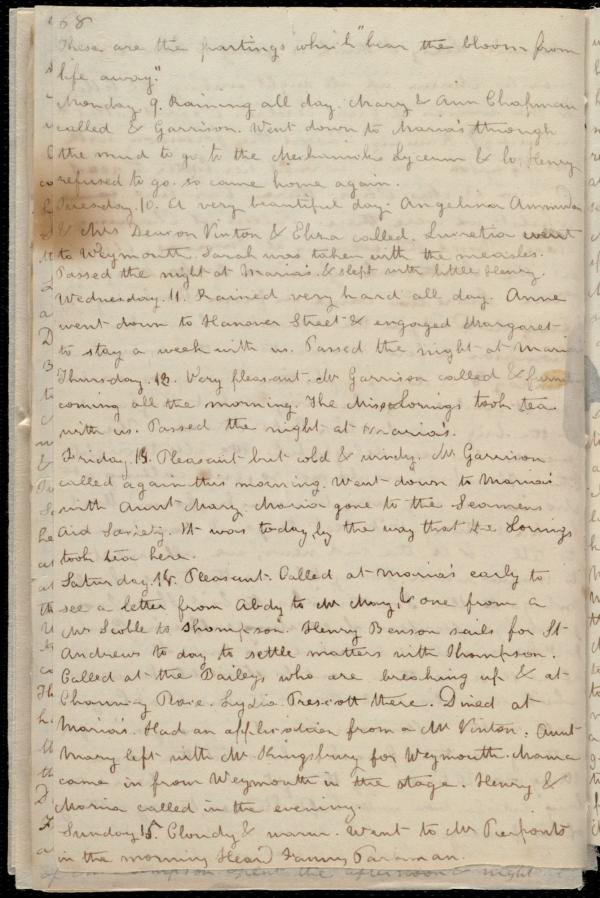 68
These are the partings which "bear the bloom from
life away."
Monday. 9. Raining all day. Mary & Ann Chapman
called & Garrison. Went down to Maria's through
the mud to go to the Mechanicks Lyceum & lo, Henry
refused to go. so came home again.
Tuesday. 10. A very beautiful day. Angelina Ammidon
& Mrs Deacon Vinton & Eliza called. Lucretia went
to Weymouth. Sarah was taken with the measles.
Passed the night at Maria's. & slept with little Henry.
Wednesday. 11. Rained very hard all day. Anne
went down to Hanover Street & engaged Margaret
to stay a week with us. Passed the night at Maria
Thursday. 12. Very pleasant. Mr Garrison called &
coming all the morning. The Miss Lorings took tea
with us. Passed the night at Maria's.
Friday. 13. Pleasant but cold & windy. Mr Garrison
called again this morning. Went down to Maria's
with Aunt Mary. Maria gone to the Seamens
Aid Society. It was today, by the way that the Lorings
took tea here.
Saturday. 14. Pleasant. Called at Maria's early to
see a letter from Abdy to Mr May, & one from a
Mrs Scoble to Thompson. Henry Benson sails for St
Andrews to day to settle matters with Thompson.
Called at the Baileys who are breaking up & at
Chauncy Place. Lydia Prescott there. Dined at
Maria's. Had an application from a Mr Vinton. Aunt
Mary left with Mr Kingsbury for Weymouth. Mama
came in from Weymouth in the stage. Henry &
Maria called in the evening.
Sunday. 15. Cloudy & warm. Went to Mr Pierponts
in the morning. Heard Farman.
spent the afternoon & night